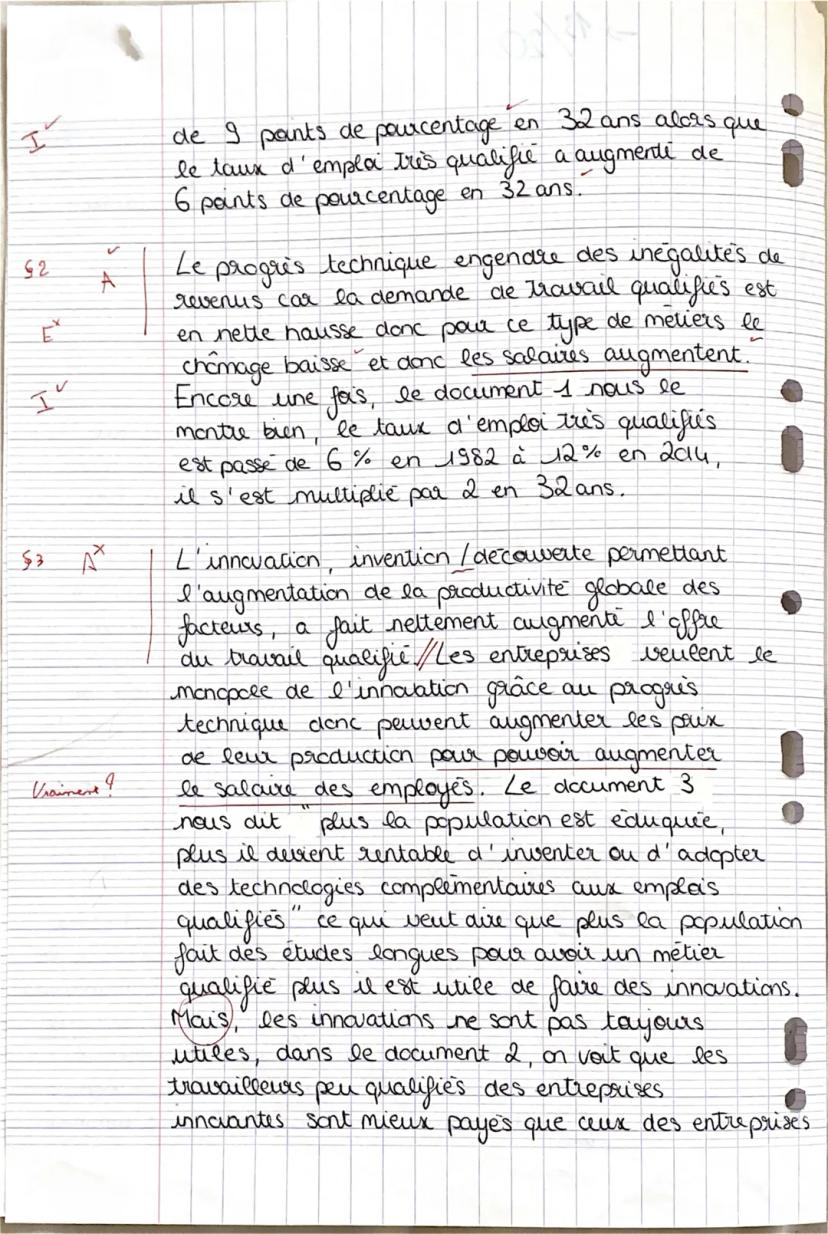 I de 9 points de pourcentage en 32 ans alors que
le taux d'emploi très qualifié a augmenté de
6 points de pourcentage en 32 ans.
§2 A Le progrès technique engendre des inégalités de
revenus car la demande de travail qualifiés est
E en nette hausse donc pour ce type de métiers le
chômage baisse et donc les salaires augmentent.
I Encore une fois, le document 1 nous le
montre bien, le taux d'emploi très qualifiés
est passé de 6 % en 1982 à 12 % en 2014,
il s'est multiplié par 2 en 32 ans.
§3 A L'innovation, invention / découverte permettant
l'augmentation de la productivité globale des
facteurs, a fait nettement augmenté l'offre
du travail qualifié. // Les entreprises veulent le
monopole de l'innovation grâce au progrès
technique donc peuvent augmenter les prix
de leur production pour pouvoir augmenter
Vraiment ? le salaire des employés. Le document 3
nous dit "plus la population est éduquée,
plus il devient rentable d'inventer ou d'adopter
des technologies complémentaires aux emplois
qualifiés" ce qui veut dire que plus la population
fait des études longues pour avoir un métier
qualifié plus il est utile de faire des innovations.
Mais, les innovations ne sont pas toujours
utiles, dans le document 2, on voit que les
travailleurs peu qualifiés des entreprises
innovantes sont mieux payés que ceux des entreprises